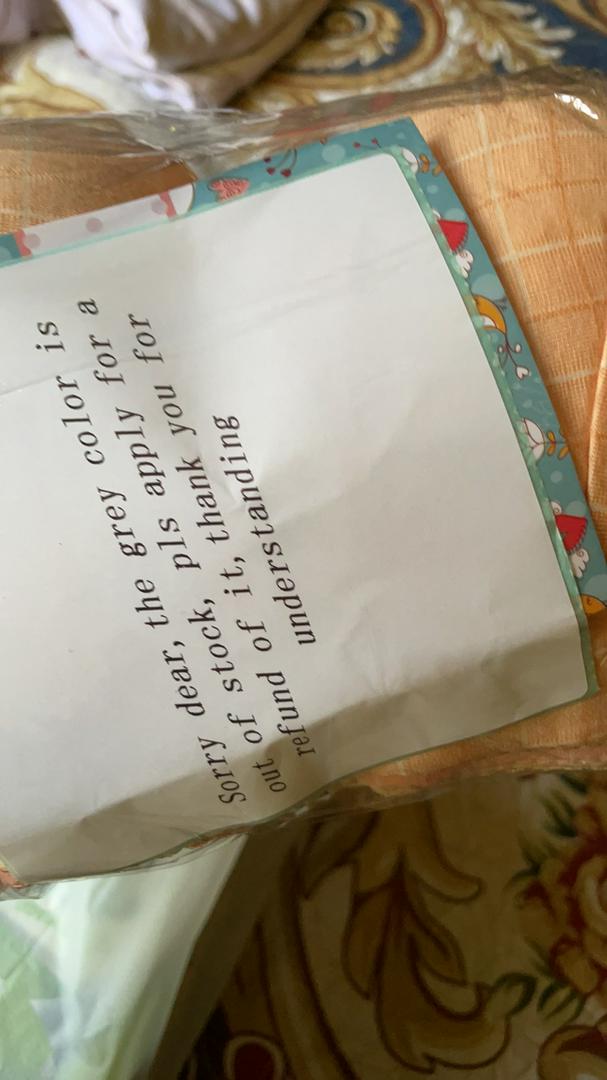 Sorry dear, the grey color is
out of stock, pls apply for a
refund of it, thank you for
understanding